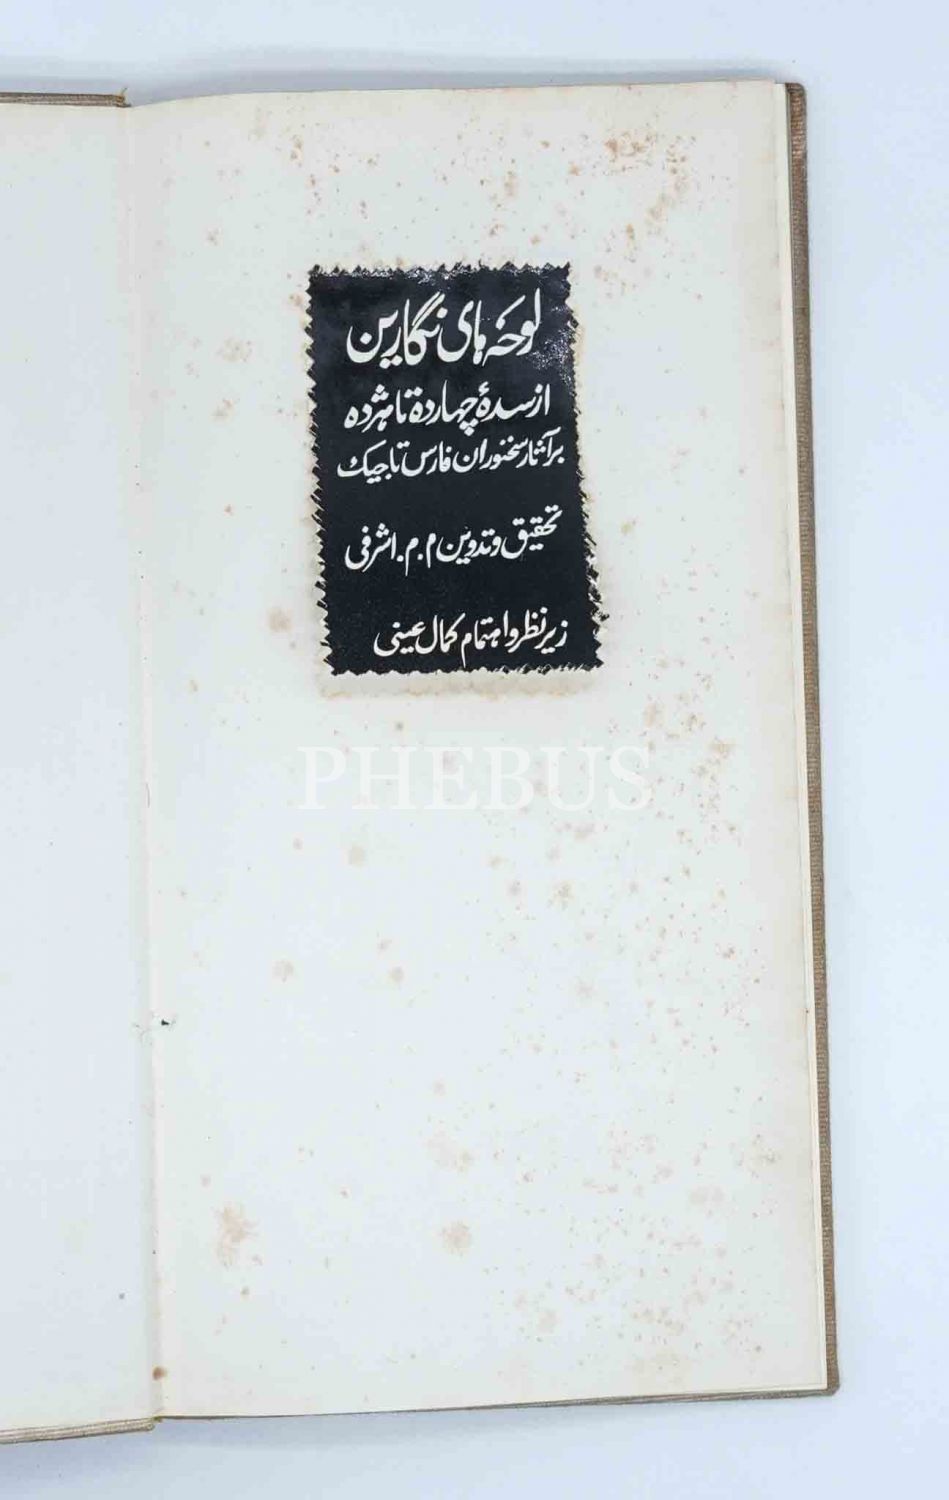 لوحه‌های نگارین
از سدهٔ چهارده تا هژده
بر آثار سخنوران فارس تاجیک
تحقیق و تدوین م.م. اشرفی
زیر نظر و اهتمام کمال عینی
PHEBUS